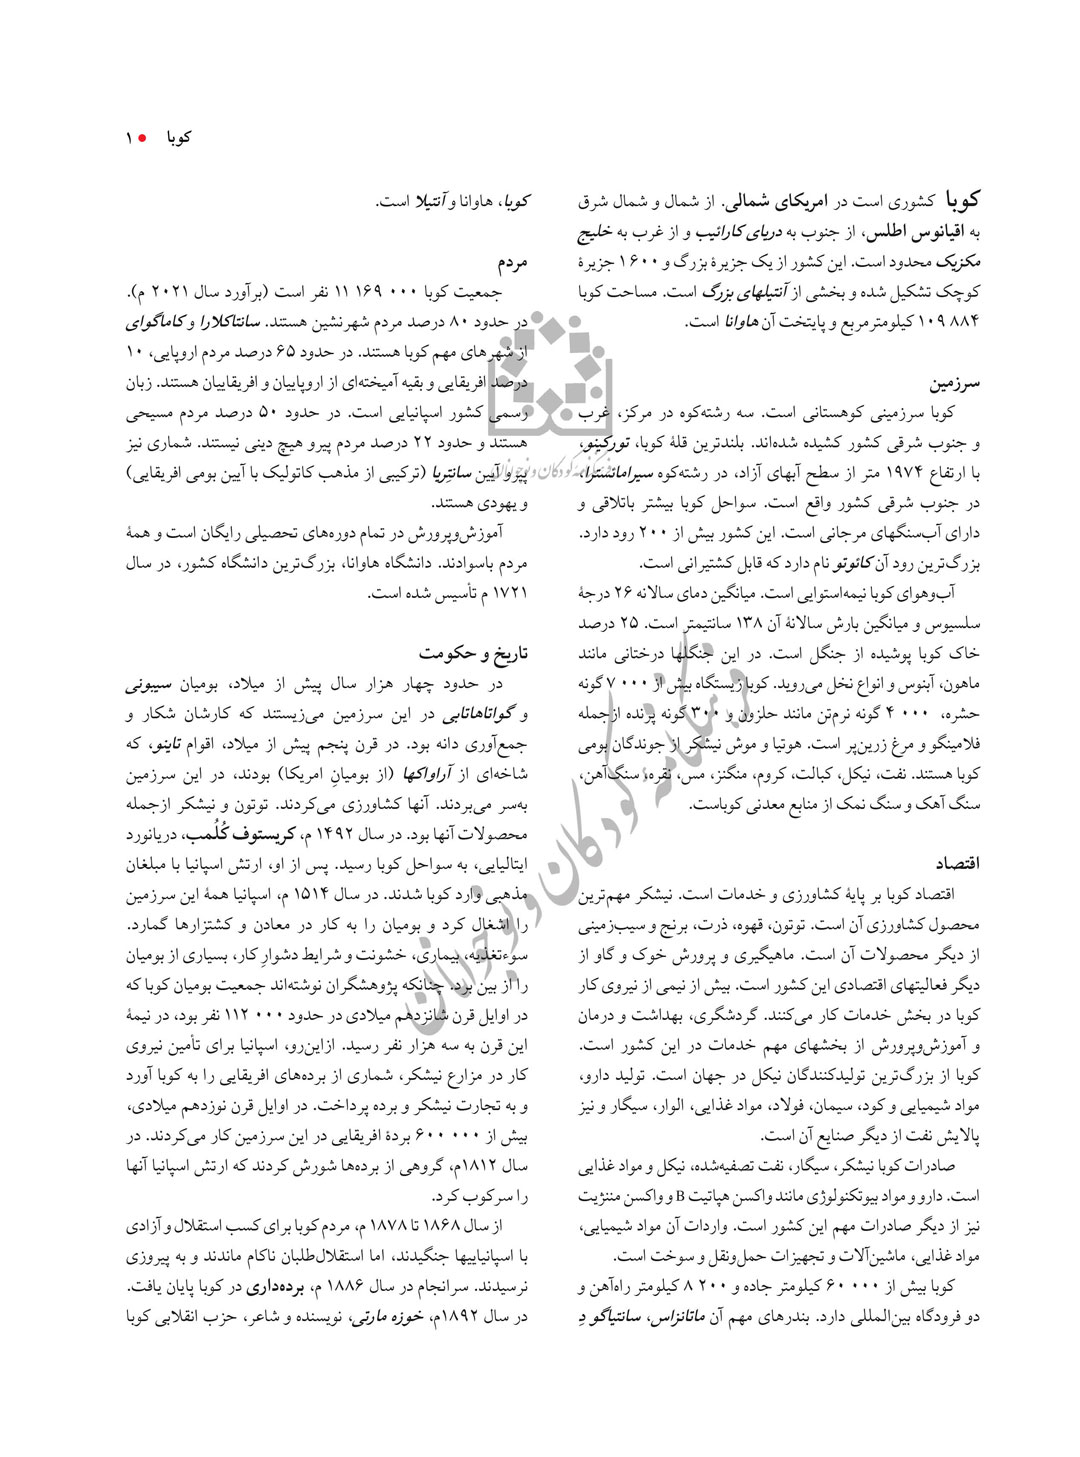 کوبا ● ۱
کوبا کشوری است در امریکای شمالی. از شمال و شمال شرق
به اقیانوس اطلس، از جنوب به دریای کارائیب و از غرب به خلیج
مکزیک محدود است. این کشور از یک جزیرهٔ بزرگ و ۱۶۰۰ جزیرهٔ
کوچک تشکیل شده و بخشی از آنتیلهای بزرگ است. مساحت کوبا
۱۰۹ ۸۸۴ کیلومترمربع و پایتخت آن هاوانا است.
سرزمین
کوبا سرزمینی کوهستانی است. سه رشته‌کوه در مرکز، غرب
و جنوب شرقی کشور کشیده شده‌اند. بلندترین قلهٔ کوبا، تورکینو،
با ارتفاع ۱۹۷۴ متر از سطح آبهای آزاد، در رشته‌کوه سیرامائسترا،
در جنوب شرقی کشور واقع است. سواحل کوبا بیشتر باتلاقی و
دارای آب‌سنگهای مرجانی است. این کشور بیش از ۲۰۰ رود دارد.
بزرگ‌ترین رود آن کائوتو نام دارد که قابل کشتیرانی است.
آب‌وهوای کوبا نیمه‌استوایی است. میانگین دمای سالانه ۲۶ درجهٔ
سلسیوس و میانگین بارش سالانهٔ آن ۱۳۸ سانتیمتر است. ۲۵ درصد
خاک کوبا پوشیده از جنگل است. در این جنگلها درختانی مانند
ماهون، آبنوس و انواع نخل می‌روید. کوبا زیستگاه بیش از ۷۰۰۰ گونه
حشره، ۴۰۰۰ گونه نرم‌تن مانند حلزون و ۳۰۰ گونه پرنده ازجمله
فلامینگو و مرغ زرین‌پر است. هوتیا و موش نیشکر از جوندگان بومی
کوبا هستند. نفت، نیکل، کبالت، کروم، منگنز، مس، نقره، سنگ‌آهن،
سنگ آهک و سنگ نمک از منابع معدنی کوباست.
اقتصاد
اقتصاد کوبا بر پایهٔ کشاورزی و خدمات است. نیشکر مهم‌ترین
محصول کشاورزی آن است. توتون، قهوه، ذرت، برنج و سیب‌زمینی
از دیگر محصولات آن است. ماهیگیری و پرورش خوک و گاو از
دیگر فعالیتهای اقتصادی این کشور است. بیش از نیمی از نیروی کار
کوبا در بخش خدمات کار می‌کنند. گردشگری، بهداشت و درمان
و آموزش‌وپرورش از بخشهای مهم خدمات در این کشور است.
کوبا از بزرگ‌ترین تولیدکنندگان نیکل در جهان است. تولید دارو،
مواد شیمیایی و کود، سیمان، فولاد، مواد غذایی، الوار، سیگار و نیز
پالایش نفت از دیگر صنایع آن است.
صادرات کوبا نیشکر، سیگار، نفت تصفیه‌شده، نیکل و مواد غذایی
است. دارو و مواد بیوتکنولوژی مانند واکسن هپاتیت B و واکسن مننژیت
نیز از دیگر صادرات مهم این کشور است. واردات آن مواد شیمیایی،
مواد غذایی، ماشین‌آلات و تجهیزات حمل‌ونقل و سوخت است.
کوبا بیش از ۶۰ ۰۰۰ کیلومتر جاده و ۸ ۲۰۰ کیلومتر راه‌آهن و
دو فرودگاه بین‌المللی دارد. بندرهای مهم آن ماتانزاس، سانتیاگو دِ
کوبا، هاوانا و آنتیلا است.
مردم
جمعیت کوبا ۱۱ ۱۶۹ ۰۰۰ نفر است (برآورد سال ۲۰۲۱ م).
در حدود ۸۰ درصد مردم شهرنشین هستند. سانتاکلارا و کاماگوای
از شهرهای مهم کوبا هستند. در حدود ۶۵ درصد مردم اروپایی، ۱۰
درصد افریقایی و بقیه آمیخته‌ای از اروپاییان و افریقاییان هستند. زبان
رسمی کشور اسپانیایی است. در حدود ۵۰ درصد مردم مسیحی
هستند و حدود ۲۲ درصد مردم پیرو هیچ دینی نیستند. شماری نیز
پیرو آیین سانتِریا (ترکیبی از مذهب کاتولیک با آیین بومی افریقایی)
و یهودی هستند.
آموزش‌وپرورش در تمام دوره‌های تحصیلی رایگان است و همهٔ
مردم باسوادند. دانشگاه هاوانا، بزرگ‌ترین دانشگاه کشور، در سال
۱۷۲۱ م تأسیس شده است.
تاریخ و حکومت
در حدود چهار هزار سال پیش از میلاد، بومیان سیبونی
و گواتاهاتابی در این سرزمین می‌زیستند که کارشان شکار و
جمع‌آوری دانه بود. در قرن پنجم پیش از میلاد، اقوام تاینو، که
شاخه‌ای از آراواکها (از بومیانِ امریکا) بودند، در این سرزمین
به‌سر می‌بردند. آنها کشاورزی می‌کردند. توتون و نیشکر ازجمله
محصولات آنها بود. در سال ۱۴۹۲ م، کریستوف کُلُمب، دریانورد
ایتالیایی، به سواحل کوبا رسید. پس از او، ارتش اسپانیا با مبلغان
مذهبی وارد کوبا شدند. در سال ۱۵۱۴ م، اسپانیا همهٔ این سرزمین
را اشغال کرد و بومیان را به کار در معادن و کشتزارها گمارد.
سوءتغذیه، بیماری، خشونت و شرایط دشوارِ کار، بسیاری از بومیان
را از بین برد. چنانکه پژوهشگران نوشته‌اند جمعیت بومیان کوبا که
در اوایل قرن شانزدهم میلادی در حدود ۱۱۲ ۰۰۰ نفر بود، در نیمهٔ
این قرن به سه هزار نفر رسید. ازاین‌رو، اسپانیا برای تأمین نیروی
کار در مزارع نیشکر، شماری از برده‌های افریقایی را به کوبا آورد
و به تجارت نیشکر و برده پرداخت. در اوایل قرن نوزدهم میلادی،
بیش از ۶۰۰ ۰۰۰ بردهٔ افریقایی در این سرزمین کار می‌کردند. در
سال ۱۸۱۲م، گروهی از برده‌ها شورش کردند که ارتش اسپانیا آنها
را سرکوب کرد.
از سال ۱۸۶۸ تا ۱۸۷۸ م، مردم کوبا برای کسب استقلال و آزادی
با اسپانیاییها جنگیدند، اما استقلال‌طلبان ناکام ماندند و به پیروزی
نرسیدند. سرانجام در سال ۱۸۸۶ م، برده‌داری در کوبا پایان یافت.
در سال ۱۸۹۲م، خوزه مارتی، نویسنده و شاعر، حزب انقلابی کوبا
فرهنگنامهٔ کودکان و نوجوانان
فرهنگنامهٔ کودکان و نوجوانان